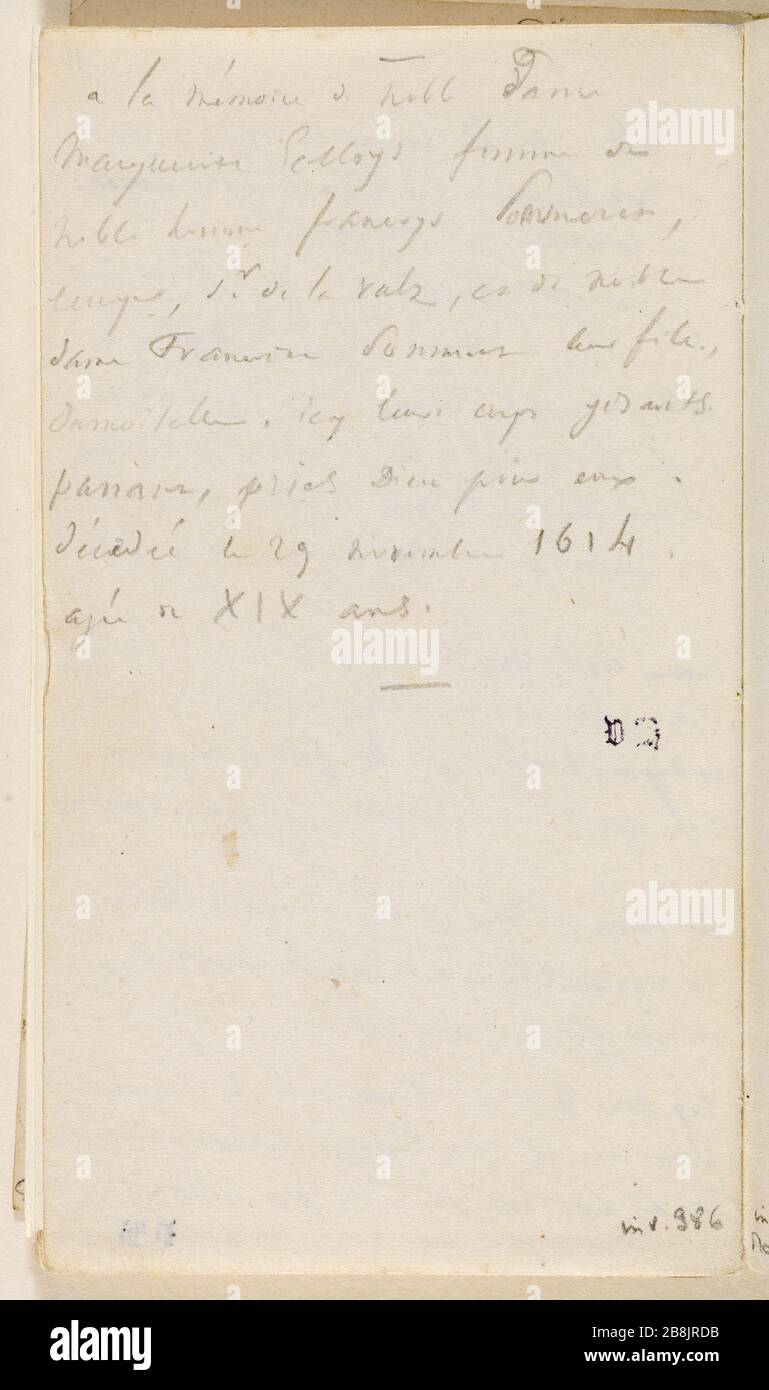 a la mémoire de noble Dame
Marguerite femme de
noble homme francoys
Sr de la Valz, et de noble
dame Francoise leur fille,
damoiselle. icy leurs corps gisants.
passans, priez Dieu pour eux.
décédée le 29 novembre 1614.
agée de XIX ans.
inv. 986
alamy
Image ID: 2B8JRDB
www.alamy.com